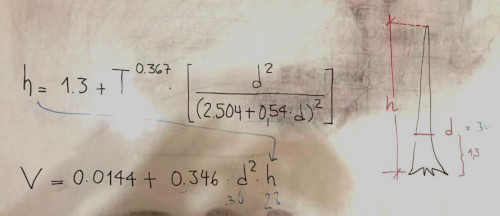 h = 1.3 + T^0.367 · [ d² / (2.504 + 0,54 · d)² ]
V = 0.0144 + 0.346 · d² · h
h
d
1,3